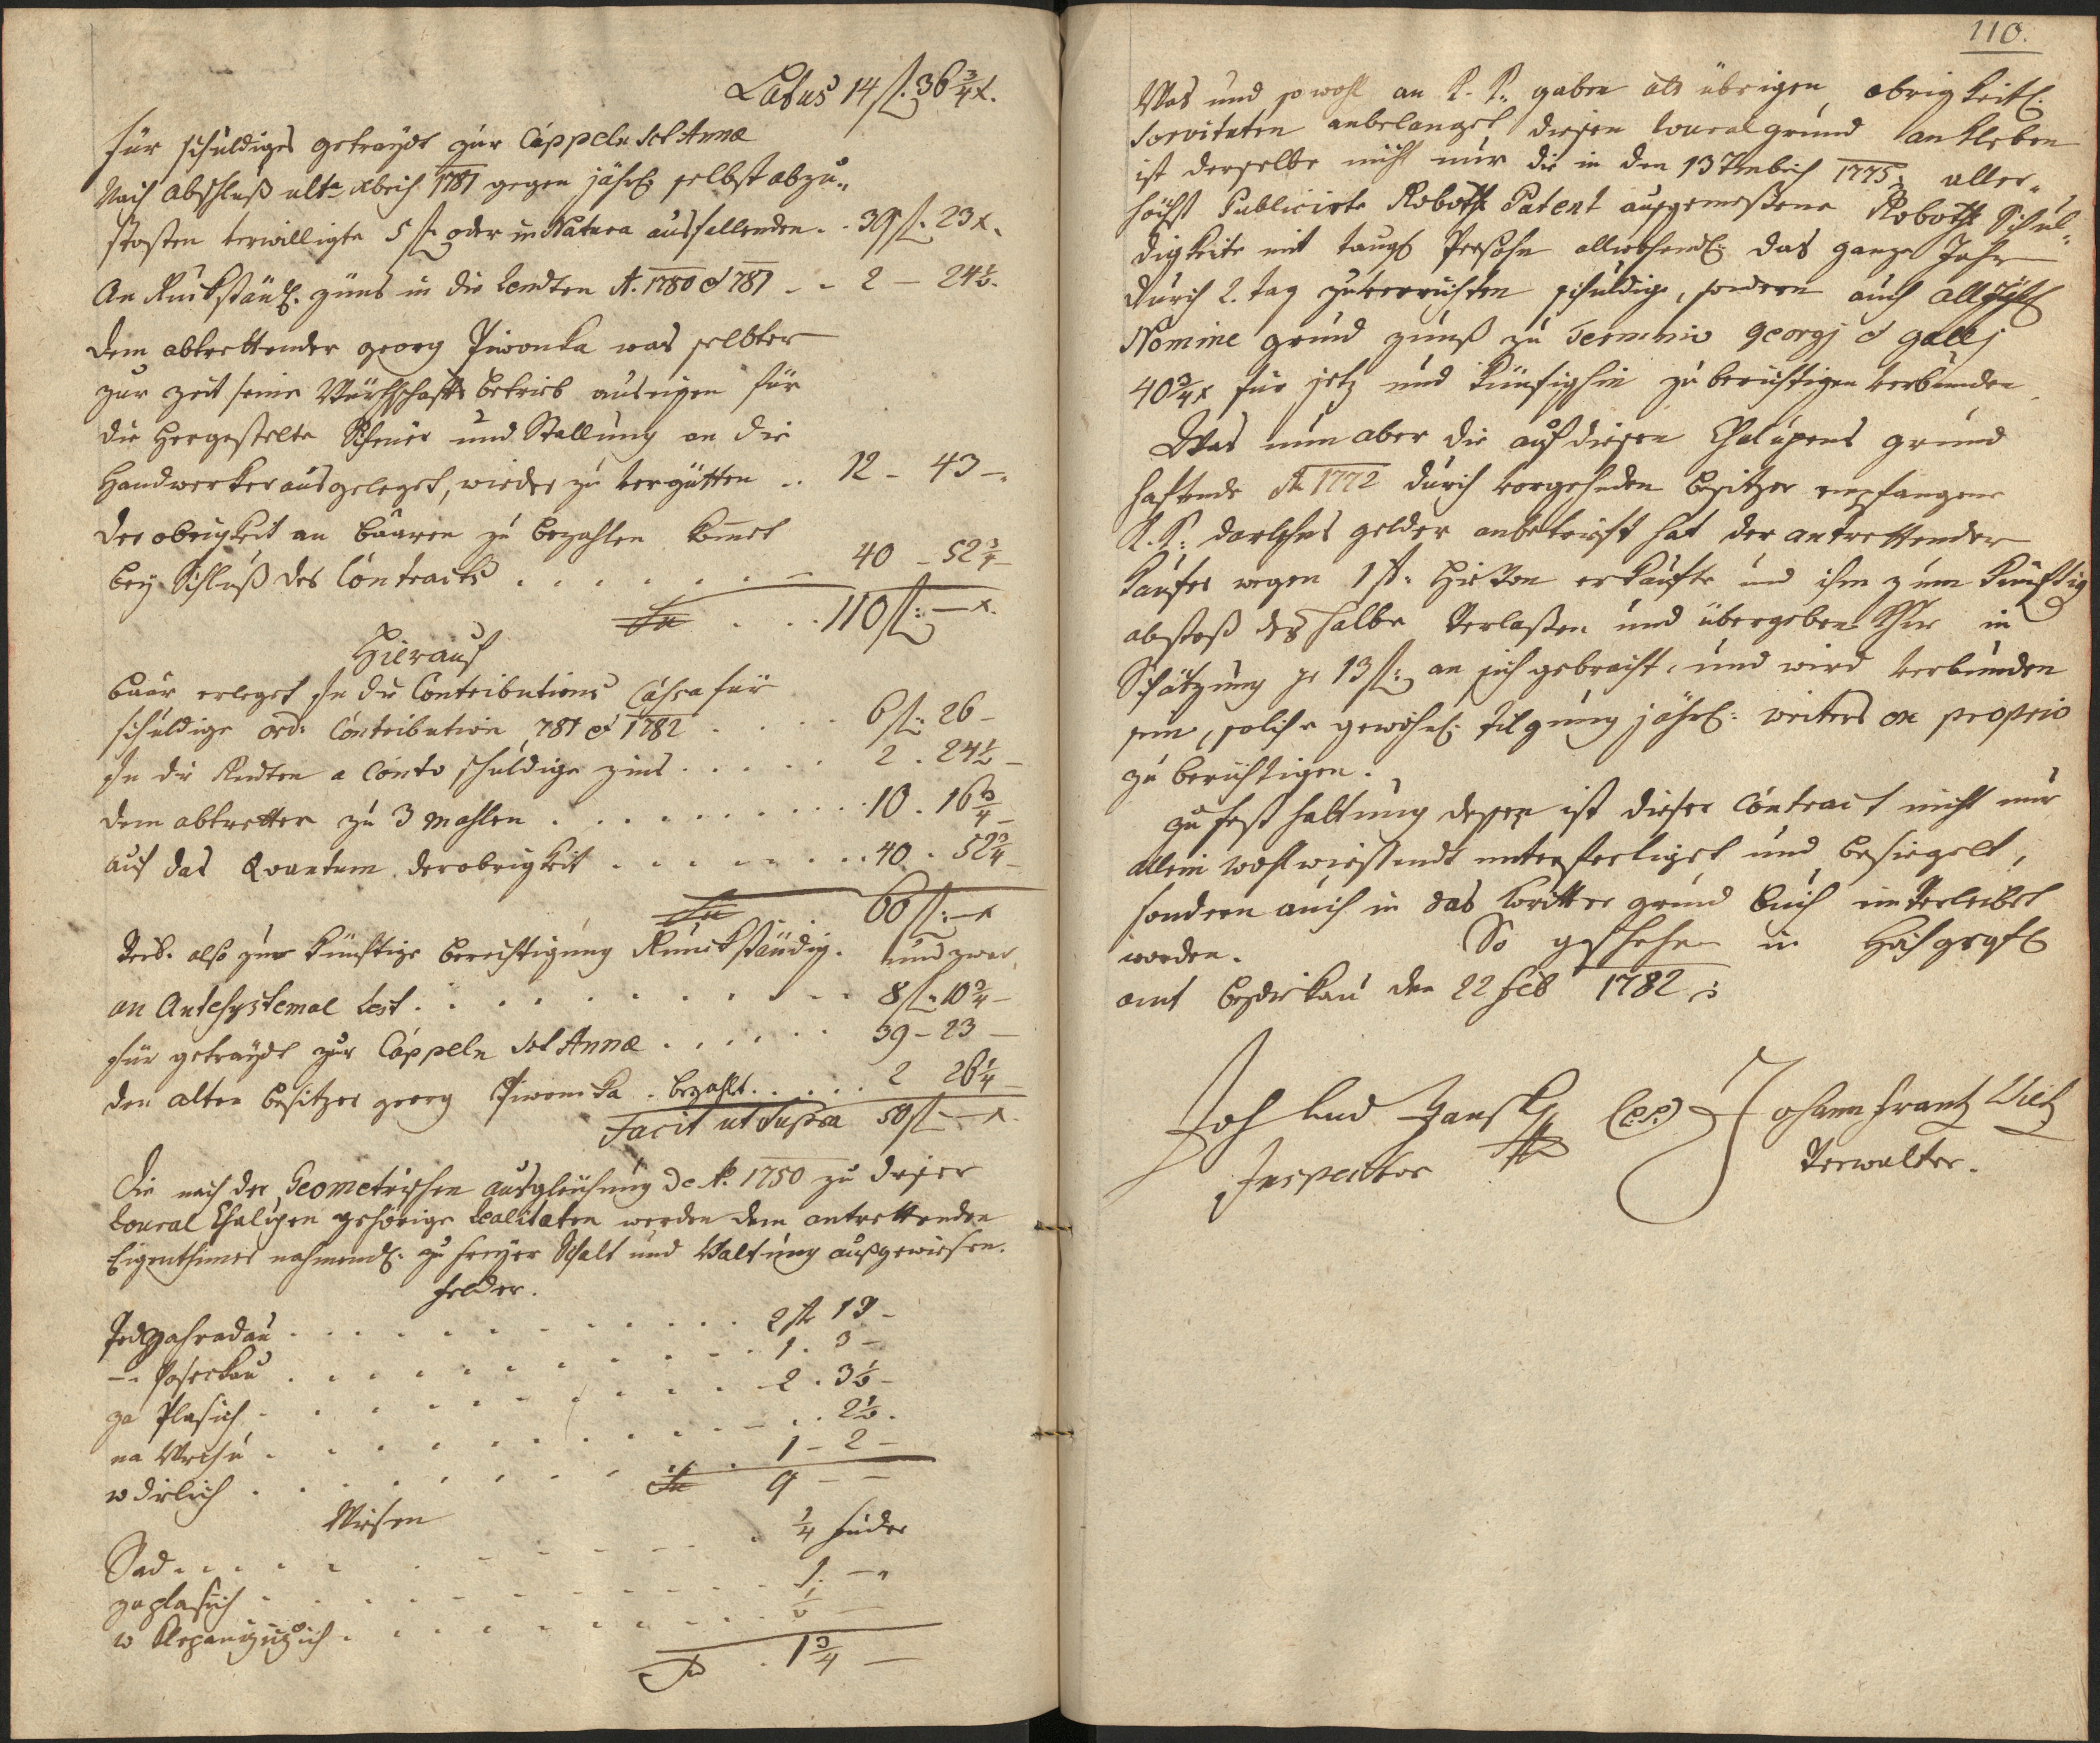 Latus 14 f. 36 3/4 x.
für schuldiges getraydt zur Cappeln Sct Annæ
Nach abschluß ulta Xbris 1781 gegen jährl: selbst abzu„
stosten verwilligte 5 f. oder in Natura ausfallenden . . 39 f. 23 x.
An Ruckständl. züns in die Rendten A. 1780 et 781 . . 2 – 24 1/2.
dem abtrettender georg Piwonka was selbter
zur zeit seine Würthschafts betrieb auseigen für
die hergestelte Scheuer und Stallung an die
Handwerker ausgeleget, wieder zu vergütten . . 12 – 43 –.
der obrigkeit an baaren zu bezahlen komet
bey Schluß des Contracts . . . . . . . 40 – 52 3/4 –
Sa . . . 110 f: – x.
Hierauf
baar erleget in die Contributions Cassa für
schuldige ord: Contribution 781 et 1782 . . . . 6 f: 26 –
in die Rendten a Conto schuldige zins . . . . . 2 . 24 1/2 –
dem abtretter zu 3 mahlen . . . . . . . . . 10 . 16 3/4 –
auf das Quantum der obrigkeit . . . . . . . . 40 . 52 3/4 –
Sa . . . 60 f: – x
Verb. also zur künftige berichtigung Ruckständig. und zwar,
an Antesystemal Rest . . . . . . . . . . 8 f: 10 3/4 –
für getraydt zur Cappeln Sct Annæ . . . . . . 39 – 23 –
den alten besitzer georg Piwonka . bezahlt . . . . . 2 26 1/4 –
Facit ut Supra 50 f – x.
Die nach der Geometrischen ausgleichung de A. 1750 zu dieser
Chalupen gehörige Realitaten werden dem antrettenden
Eigenthümer nahmendl: zu freyer Schalt und Waltung außgewiesen.
felder.
Podzahradau . . . . . . . . . . . 2 st 13 –
–. . . . . . . . . . . . 1 . 3 –
za Plasich . . . . . . . . . . 2 . 3 1/2 –
na Wrchu . . . . . . . . . . . . . 2 1/2 .
w dilich . . . . . . . . . . 1 – 2 –
Sa 9 – –
Wiesen
Sad . . . . . . . . . . . 1/4 fuder
za plasich . . . . . . . . . 1. –„
w . . . . . . . . . 1/2 –
Sa . 1 3/4 –
110.
Was und sowohl an K. K: gaben als übrigen obrigkeitl.
Servituten anbelanget diesen grund ankleben
ist derselbe nicht nur die in den 13 7mbris 1775: aller„
höchst Publicirte Roboth Patent ausgemeßene Roboth Schul„
digkeite mit taugl Persohn allwochendl: das ganze Jahr
durch 2. tag zu verrichten schuldig, sondern auch alljährl
Nomine grund zünß zu Termino georgj et gallj
40 3/4 x für jetz und künfighin zu berichtigen verbunden
Was nun aber die auf diesen Chalupens grund
haftende A 1772 durch vorgehenden besitzer empfangene
K. K: darlehns gelder anbetrifft hat der antrettender
Kaufer wegen 1 st: erkaufte und ihm zum künftig
abstoß deshalbe verlaßen und übergeben in
Schätzung pr 13 f: an sich gebracht, und wird verbunden
sein, solche gewöhnl: tilgung jährl: weiters ex proprio
zu berichtigen.
zu festhaltung dessen ist dieser Contract nicht nur
allein wohlwissendt unterfertiget und besiegelt,
sondern auch in das grund buch einverleibet
worden. So geschehen in
amt den 22 Feb 1782 :
Joh Lud Jansky (L.S.) Johann Frantz
Inspector Verwalter.